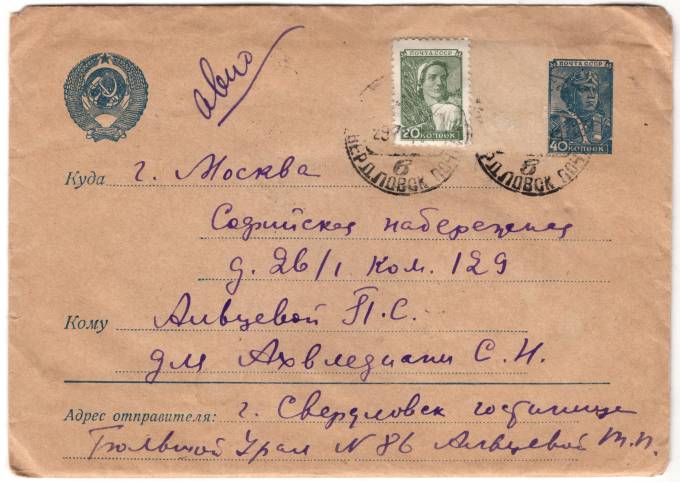 авио
ПОЧТА СССР
20 КОПЕЕК
ПОЧТА СССР
40 КОПЕЕК
ВЕРДЛОВСК ПОЧ
6
РДЛОВСК ПОЧ
6
Куда г. Москва
Софийская набережная
д. 26/1 ком. 129
Кому Алвцевой П.С.
для Ахвледиани С.Н.
Адрес отправителя: г. Свердловск гостиница
Большой Урал N 86 Алвцевой